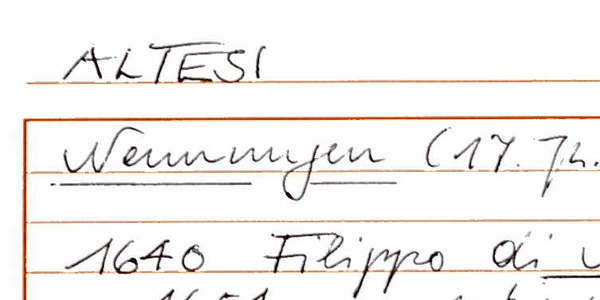 ALTESI
Nennungen (17. Jh.
1640 Filippo di